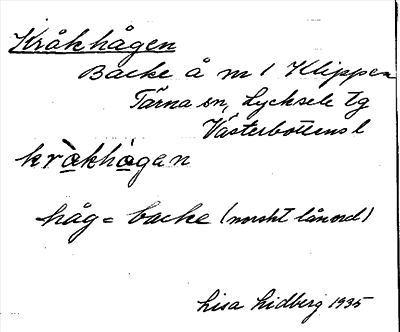 Kråkhågen
Backe å m 1 Klippen
Tärna sn, Lycksele tg
Västerbottens l
kràkhàgan
håg = backe (norskt lånord)
Lisa Lidberg 1935